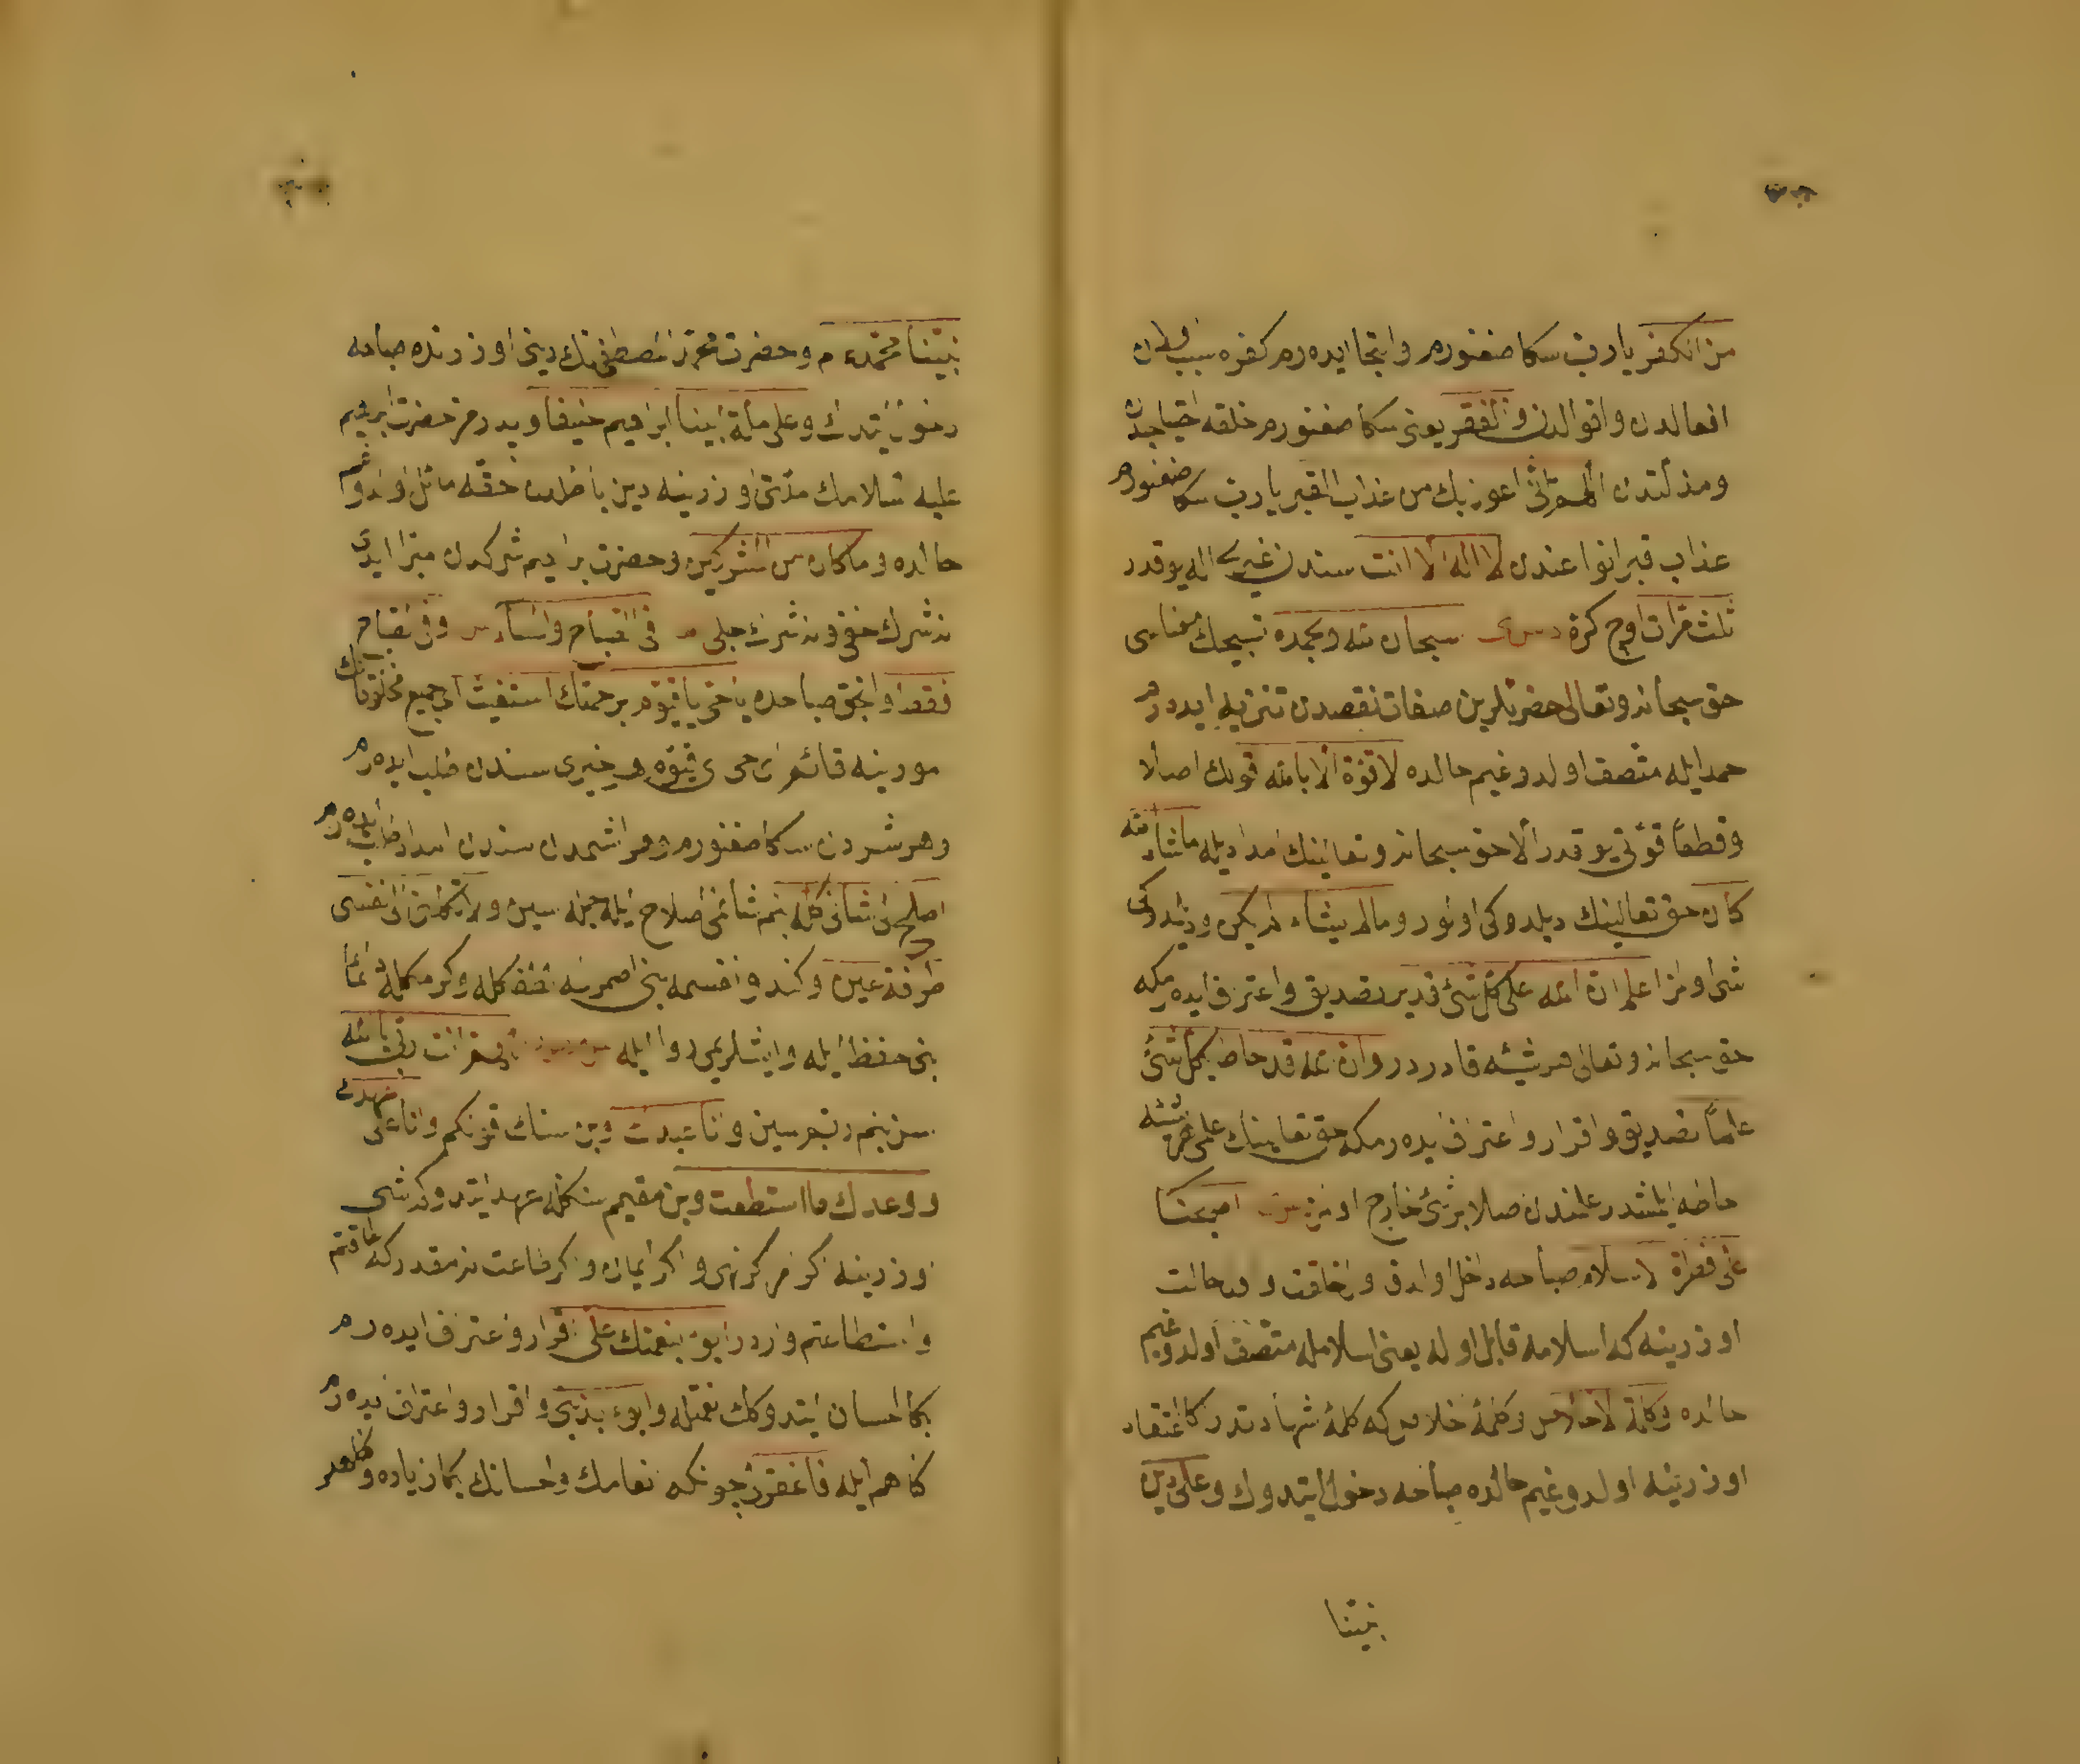 من الكفر يا رب سكا صغنورم والتجا ايده رم كفره سبب اولان
افعالدن واقوالدن والفقر يعنى سكا صغنورم خلقه احتياجدن
ومذلتدن اللهم انى اعوذ بك من عذاب القبر يا رب سكا صغنورم
عذاب قبر انواعندن لا اله الا انت سندن غيرى اله يوقدر
ثلث مرات اوچ كره د س ى سبحان الله وبحمده تسبيحك معناسى
حق سبحانه وتعالى حضرتلرين صفات نقصدن تنزيه ايده رم
حمد ايله متصف اولدوغيم حالده لا قوة الا بالله قوتك اصلا
وقطعا قوتى يوقدر الا حق سبحانه وتعالينك امداديله ما شاء الله
كان حق تعالينك ديلدوكى اولور وما لم يشاء لم يكن وديلمدوكى
شى اولمز اعلم ان الله على كل شئ قدير تصديق واعتراف ايده رمكه
حق سبحانه وتعالى هر شيئه قادردر وان الله قد احاط بكل شئ
علما تصديق واقرار واعتراف ايده رمكه حق تعالينك علمى هر شيئه
احاطه ايلمشدر علمندن اصلا بر شئ خارج اولمز اصبحنا
على فطرة الاسلام صباحه داخل اولدق اول خلقت واول حالت
اوزرينه كه اسلامه قابل اوله يعنى اسلامله متصف اولدوغيم
حالده وكلمة الاخلاص وكلمۀ اخلاص كه كلمۀ شهادتدر كا اعتقاد
اوزرينه اولدوغيم حالده صباحه دخول ايتدوك وعلى دين
نبينا
نبينا محمد ءم وحضرت محمد المصطفى نك دينى اوزرنده صباحه
دخول ايتدك وعلى ملة ابينا ابراهيم حنيفا وپدرمز حضرت ابرهيم
عليه السلامك ملتى اوزرينه دين باطلدن حقه مائل اولدوغم
حالده وما كان من المشركين وحضرت ابراهيم شركدن مبرا ايدى
نه شرك خفى ونه شرك جلى فى الصباح والمساء وفى الصباح
فقط وانجق صباحده يا حى يا قيوم برحمتك استغيث اى جميع مخلوقاتك
امورينه قائم اى حى اى قيوم هر خيرى سندن طلب ايده رم
وهر شردن سكا صغنورم وهر ايشمدن سندن امداد طلب ايده رم
اصلح لى شانى كله بنم شانمى اصلاح ايله جمله سين ولا تكلنى الى نفسى
طرفة عين وكندو نفسمه بنى اصمرلمه لطف كله وكرمكله دائما
بنى حفظ ايله وايشلريمى روا ايله اللهم انت ربى يا الله
سن بنم ربمسين وانا عبدك وبن سنك قولكم وانا على عهدك
ووعدك ما استطعت وبن مقيم سنكله عهد ايتدوكم شى
اوزرينه اكر مركز اى واكر ايمان واكر طاعت نه مقدر كه طاقتم
واستطاعتم واردر ابوء بنعمتك على اقرار واعتراف ايده رم
بكا احسان ايتدوكك نعمتله وابوء بذنبى واقرار واعتراف ايده رم
كناهم ايله فاغفرلى چونكه انعامك واحسانك بكا زياده وكناهلر